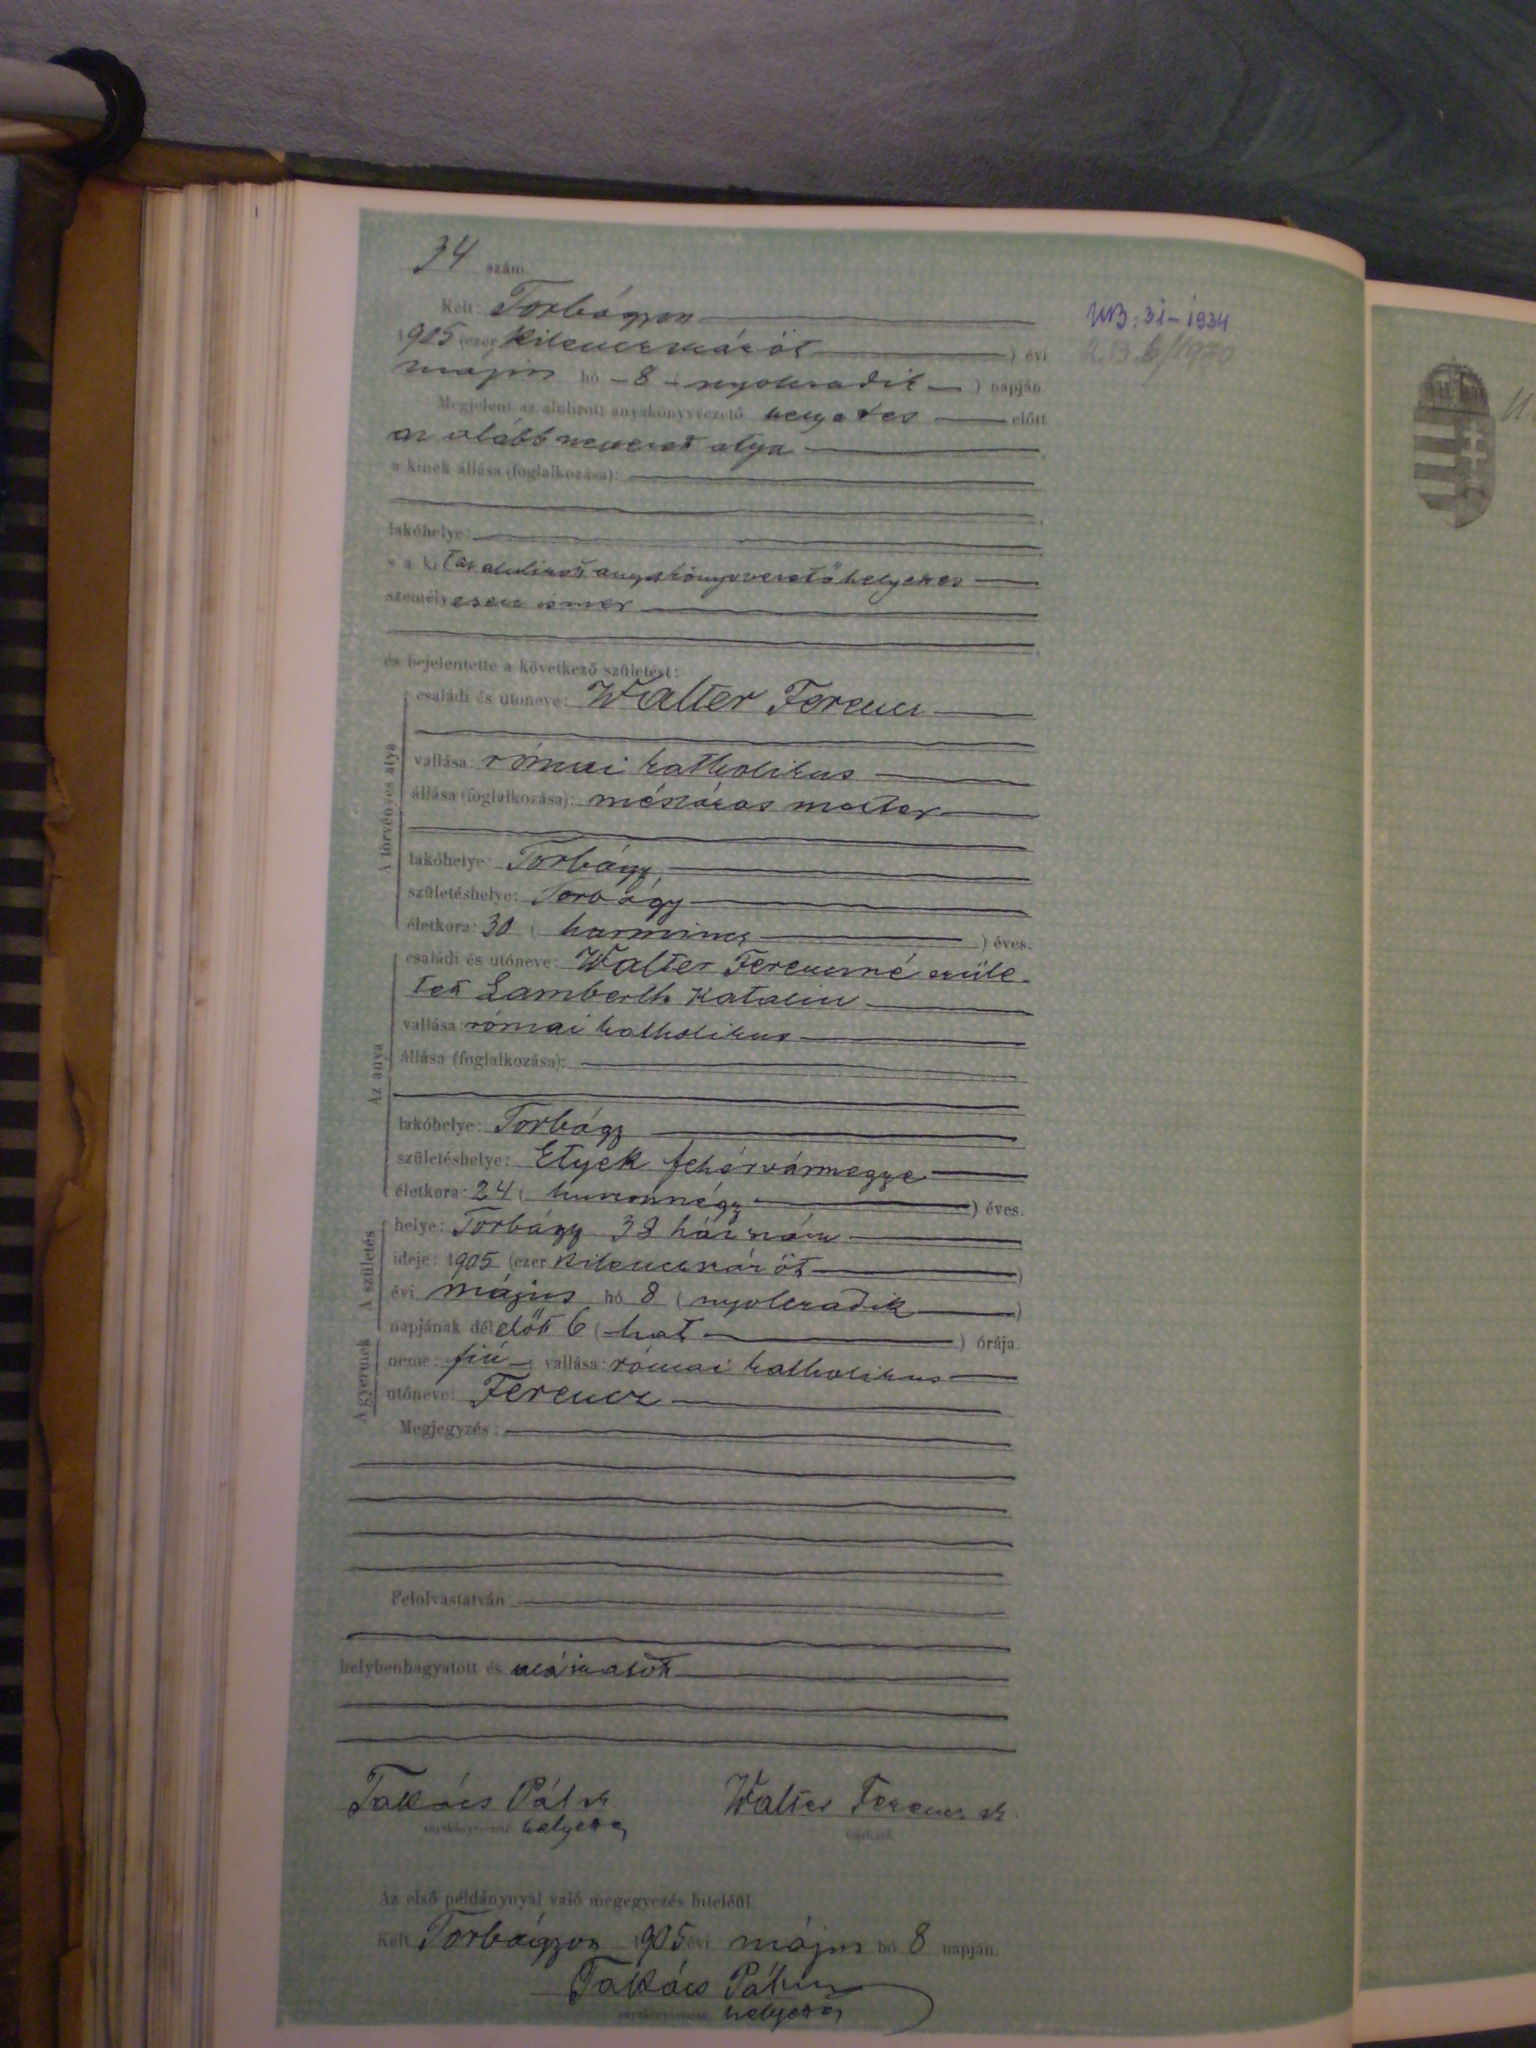 34 szám.
Kelt: Torbágyon
1905 (ezer kilenczszáz öt ) évi
május hó - 8 - nyolczadik ) napján
Megjelent az alulirott anyakönyvvezető helyettes előtt
az alább nevezett atya
a kinek állása (foglalkozása):
lakóhelye:
s a kit az alulirott anyakönyvvezető helyettes
személyesen ismer
és bejelentette a következő születést:
A törvényes atya
családi és utóneve: Walter Ferencz
vallása: római katholikus
állása (foglalkozása): mészáros mester
lakóhelye: Torbágy,
születéshelye: Torbágy
életkora: 30 ( harmincz ) éves.
Az anya
családi és utóneve: Walter Ferenczné szüle-
tett Lamberth Katalin
vallása: római katholikus
állása (foglalkozása):
lakóhelye: Torbágy
születéshelye: Etyek fehérvármegye
életkora: 24 ( huszonnégy ) éves.
A születés
helye: Torbágy 38 ház szám
ideje: 1905 (ezer kilenczszáz öt )
évi május hó 8 ( nyolczadik )
napjának délelőtt 6 ( hat ) órája.
A gyermek
neme: fiú vallása: római katholikus
utóneve: Ferencz
Megjegyzés:
Felolvastatván
helybenhagyatott és aláiratott
Takács Pál sk Walter Ferencz sk
anyakönyvvezető helyettes bejelentő
Az első példánynyal való megegyezés hiteléül
Kelt Torbágyon 1905 évi május hó 8 napján.
Takács Pál
anyakönyvvezető helyettes
UB: 31-1934